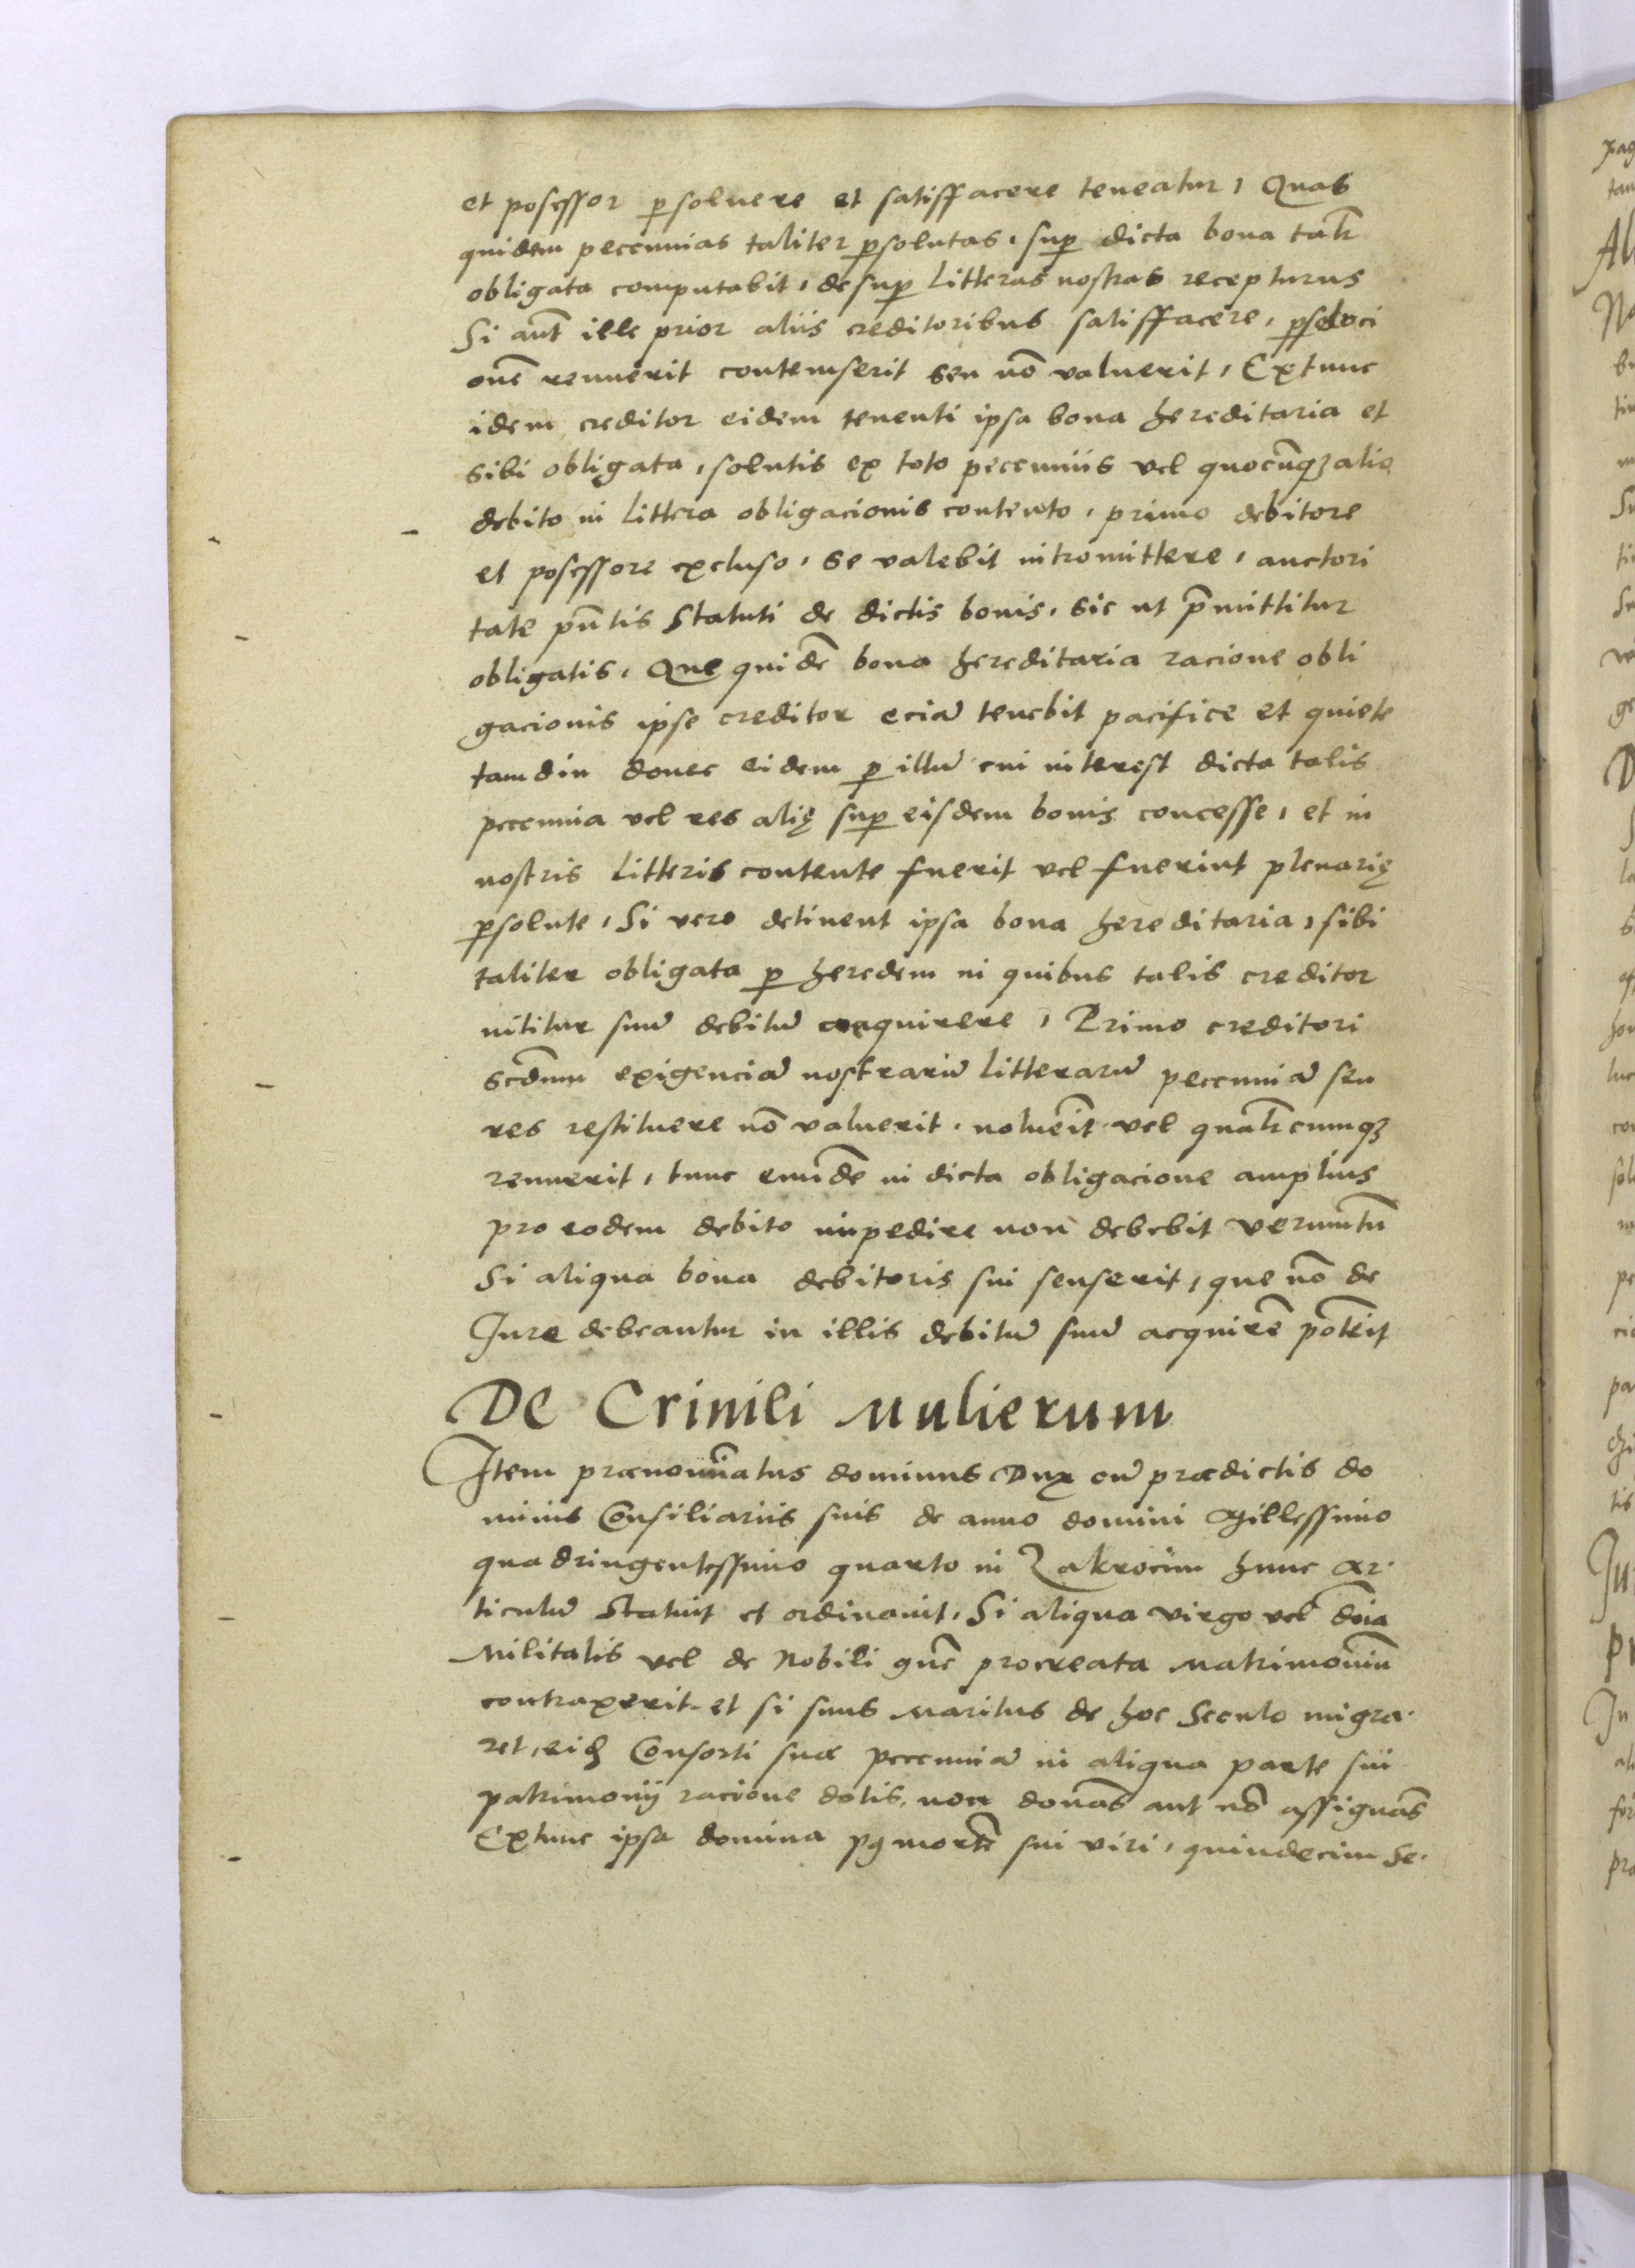 et posessor ꝑsoluere et satisffacere teneatur, Quas
quidem peccunias taliter ꝑsolutas, suꝑ dicta bona talr̃
obligata computabit, desuꝑ litteras nostras recepturus
Si aut̃ ille prior aliis creditoribus satisffacere, ꝑsoluci
onẽ rennuerit contemserit seu nõ valuerit, Extunc
idem creditor eidem tenenti ipsa bona hereditaria et
sibi obligata, solutis ex toto peccuniis vel quocũqꝫ alio
debito in littera obligacionis contento, primo debitore
et posessore excluso, se valebit intromittere, auctori
tate pñtis Statuti de dictis bonis, sic ut p̃mittitur
obligatis, Que quidẽ bona hereditaria racione obli
gacionis ipse creditor eciã tenebit pacifice et quiete
tamdiu donec eidem ꝑ illũ cui interest dicta talis
peccunia vel res alię suꝑ eisdem bonis concesse, et in
nostris litteris contente fuerit vel fuerint plenarię
ꝑsolute, Si vero detinent ipsa bona hereditaria, sibi
taliter obligata ꝑ heredem in quibus talis creditor
nititur suũ debitũ acquirere, Primo creditori
scdmm exigenciã nostrarũ litterarũ peccuniã seu
res restituere nõ valuerit, noluẽit vel qualr̃cumqꝫ
rennuerit, tunc eundẽ in dicta obligacione amplius
pro eodem debito impedire non debebit verumtñ
Si aliqua bona debitoris sui senserit, que nõ de
Jure debeantur in illis debitũ suũ acquirẽ potẽit
De Crinili Mulierum
Item prænoĩnatus dominus Dux cũ prædictis do
minis Consiliariis suis de anno domini Millessimo
quadringentessimo quarto in Zakrocim hunc ar-
ticulũ Statuit et ordinauit, Si aliqua virgo vel dõia
Militalis vel de Nobili gñe procreata Matrimoniũ
contraxerit et si suus Maritus de hoc Seculo migra-
ret, Consorti suæ peccuniã in aliqua parte sui
patrimonij racione dotis, non donãs aut nõ assignãs
Extunc ipsa domina pꝰ mortẽ sui viri, quindecim Se-